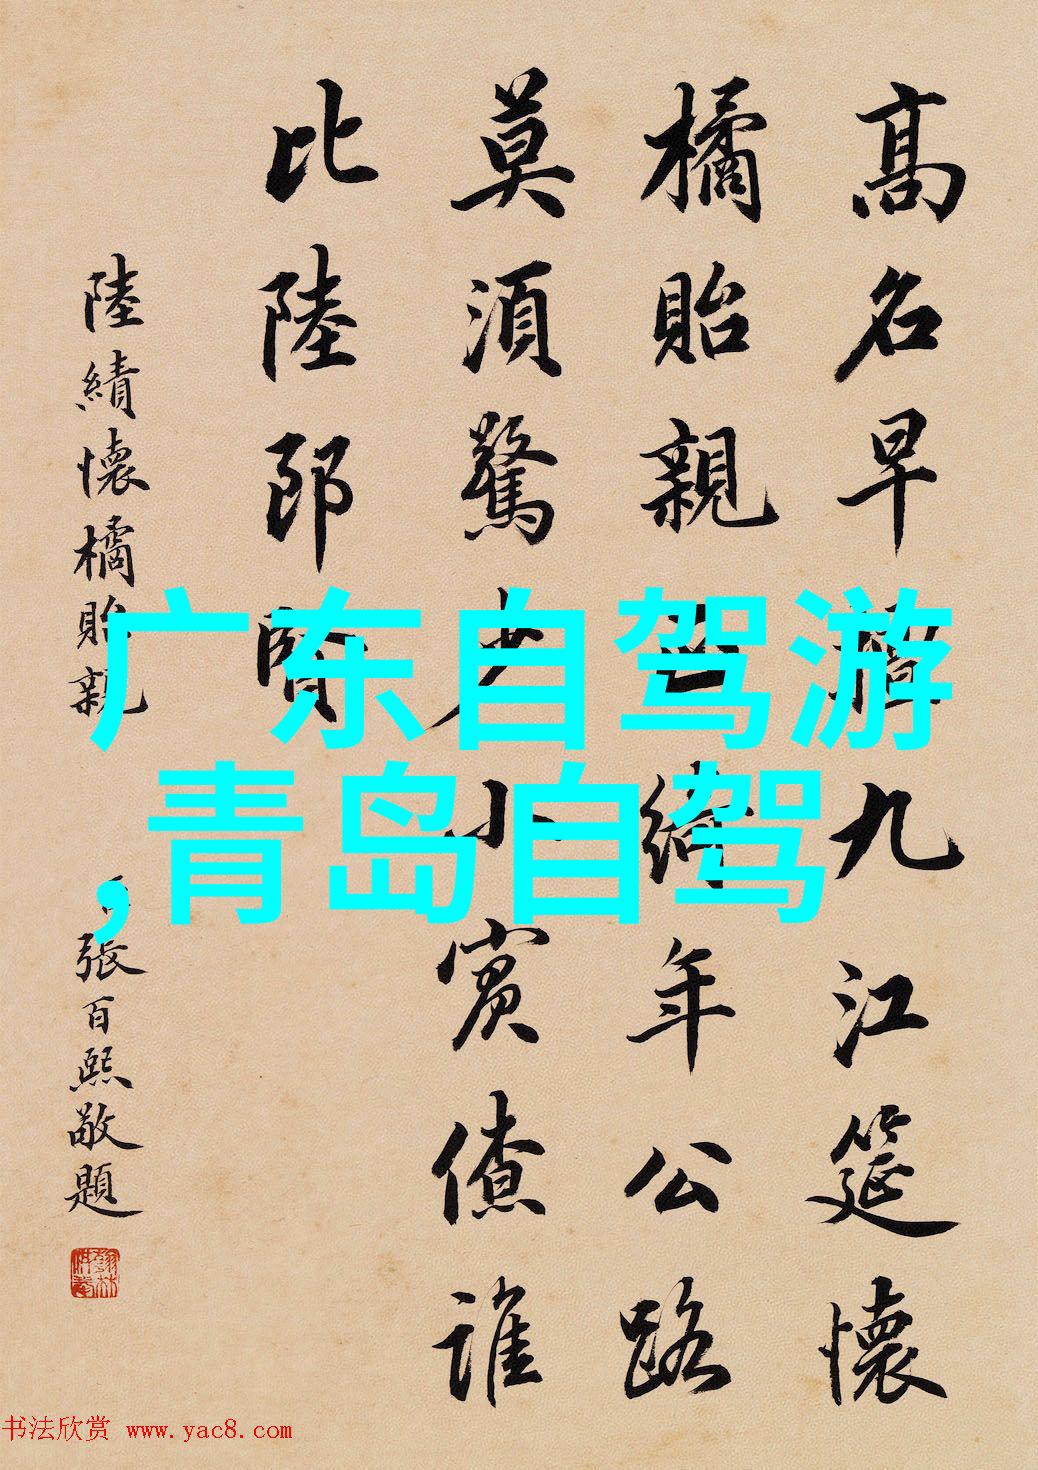 高名早九江筵懷
橘貽親綺年公路
莫須驚少小賓僚誰
比陸郎賢
陸績懷橘貽親
張百熙敬題
广东自驾游
,青岛自驾
书法欣赏 www.yac8.com